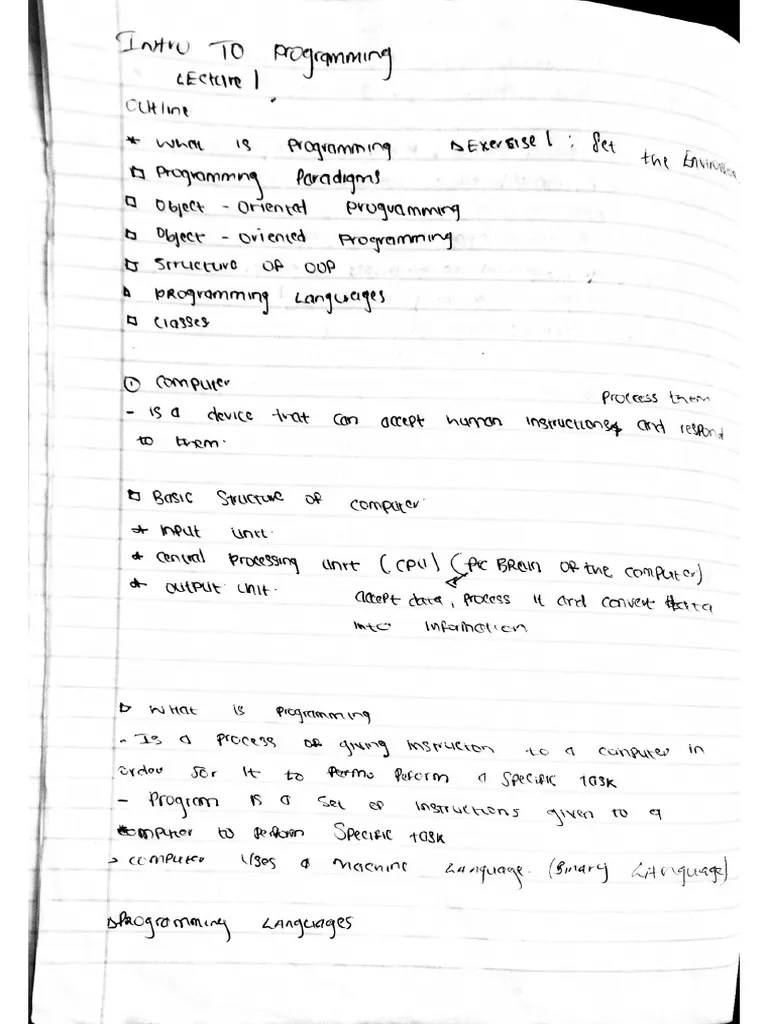 Intro TO Programming
LECture 1
Outline
* What is Programming ▷ Exersise 1 : Set the Environ
□ Programming Paradigms
□ Object - Oriented Programming
□ Object - oriented Programming
□ Structure OF OOP
▷ PROgramming Languages
□ Classes
① Computer
Proccess them
- is a device that can accept human instructions, and respond
to them.
□ Basic Structure OF Computer
* Input unit.
* Central Processing unit (CPU) (PC BRain OF the computer)
* Output unit. accept data, process it and convert data
into information
▷ What is Programming
- Is a Process of giving instrucion to a computer in
order for it to Perform a specific task
- Program is a set of instructions given to a
computer to perform Specific task
> Computer Uses a Machine Language (Binary LANguage)
▷ PROgramming LANguages